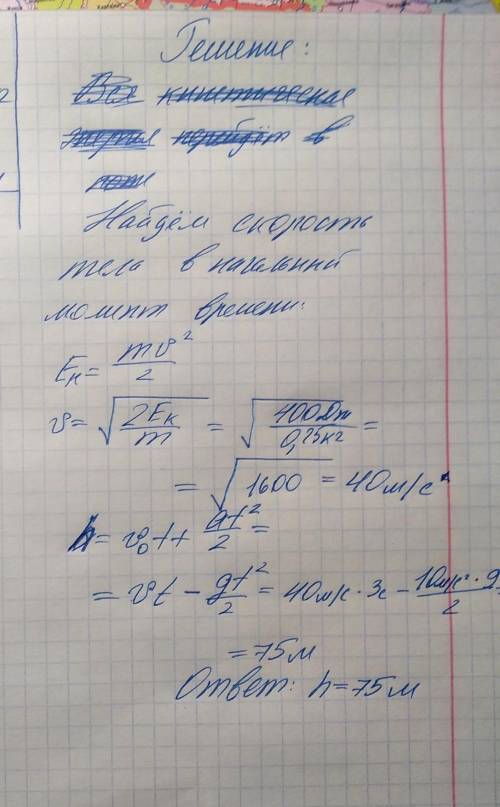 Решение:
Вся кинетическая
энергия перейдёт в
поте
Найдём скорость
тела в начальный
момент времени:
Eк = mv²/2
v = √(2Eк/m) = √(400Дж/0,25кг) =
= √1600 = 40м/с
h = v₀t + gt²/2 =
= vt - gt²/2 = 40м/с · 3с - 10м/с² · 9/2
= 75м
Ответ: h = 75м